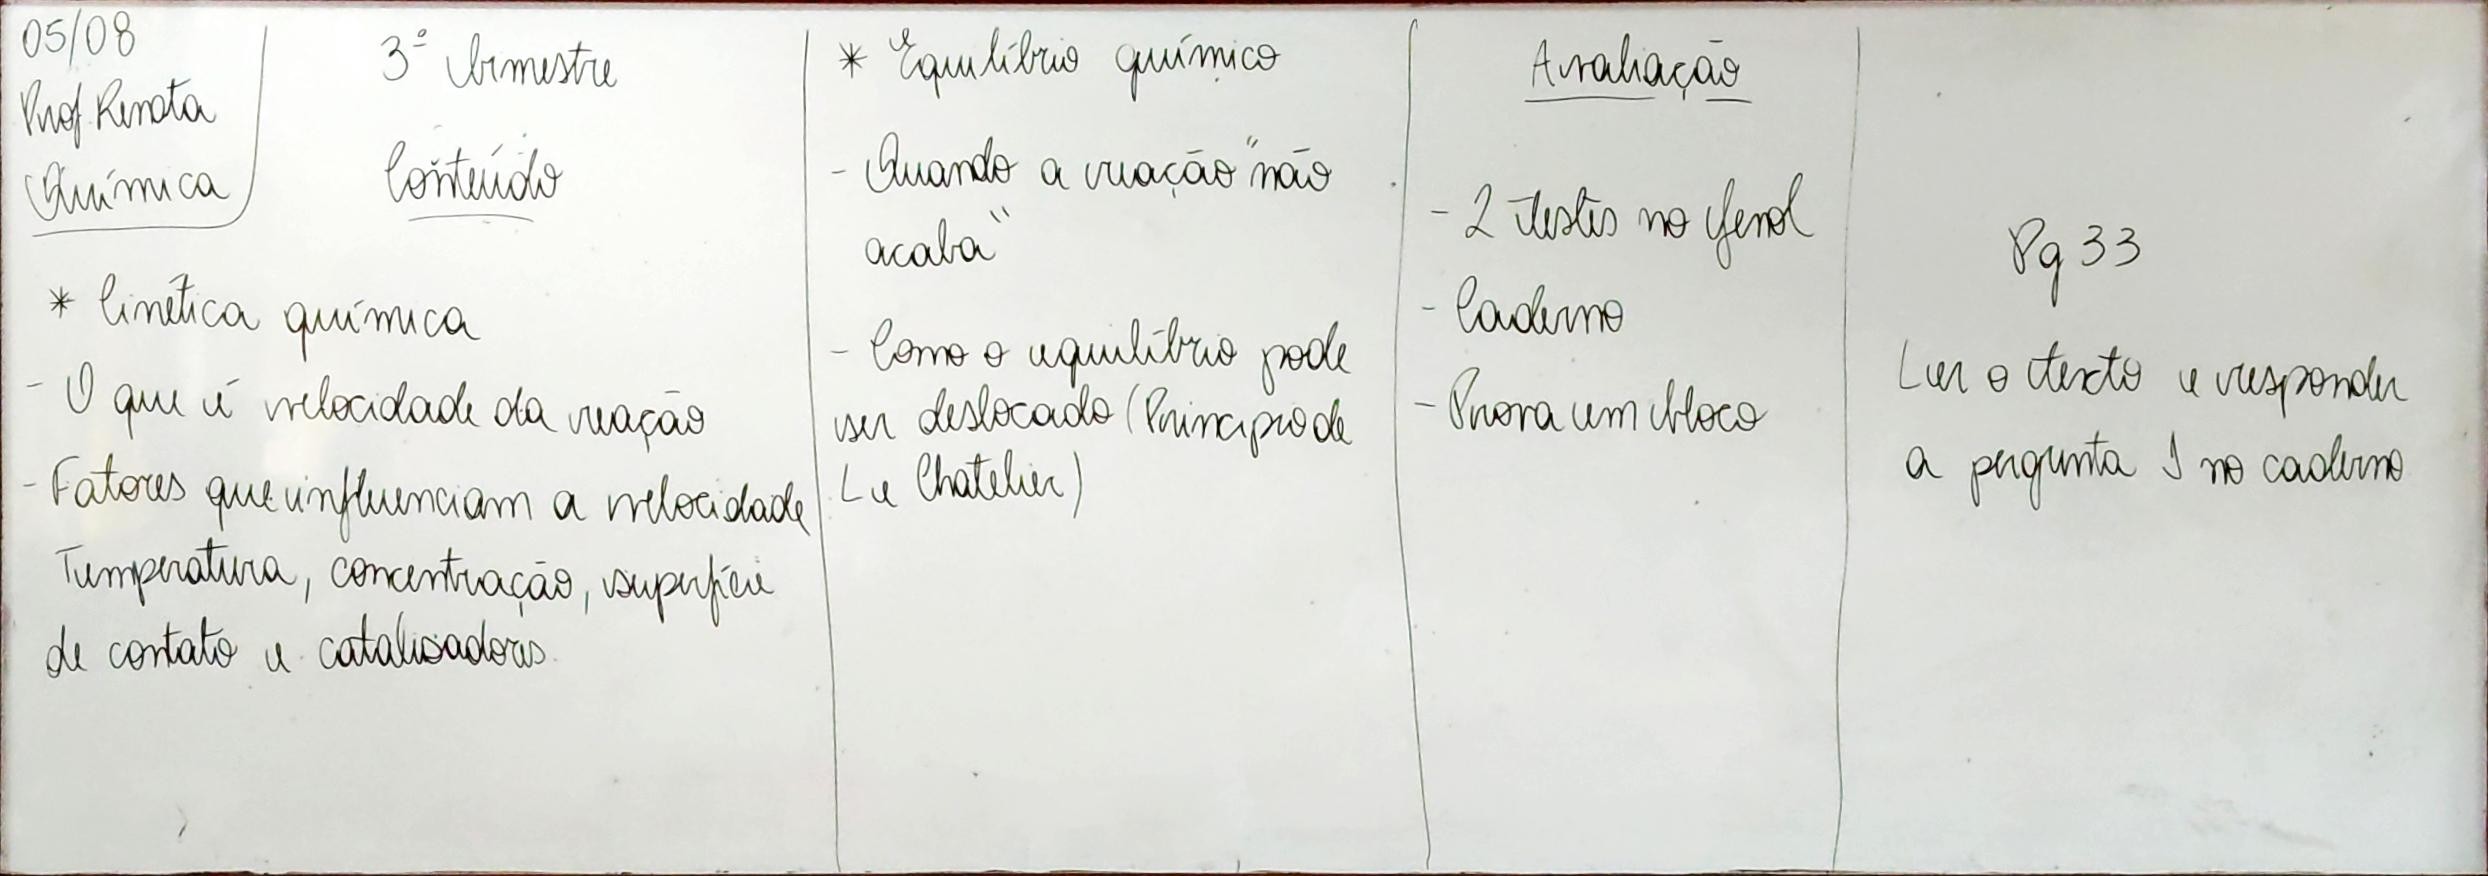 05/08
Prof Renata
Química
3º bimestre
Conteúdo
* Cinética química
- O que é velocidade da reação
- Fatores que influenciam a velocidade
Temperatura, concentração, superfície
de contato e catalisadores
* Equilíbrio químico
- Quando a reação "não
acaba"
- Como o equilíbrio pode
ser deslocado (Princípio de
Le Chatelier)
Avaliação
- 2 testes no fenol
- Caderno
- Prova em bloco
Pg 33
Ler o texto e responder
a pergunta 1 no caderno